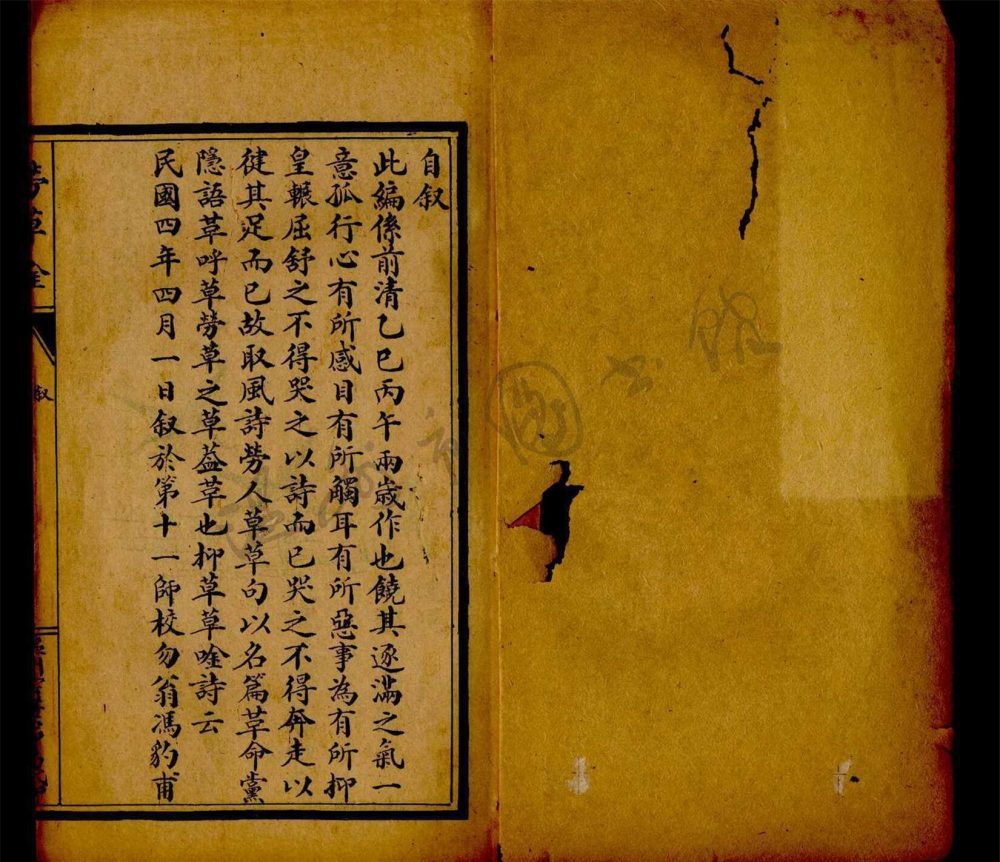 自叙
此編係前清乙巳丙午兩歲作也饒其逐滿之氣一
意孤行心有所感目有所觸耳有所惡事為有所抑
皇轅屈舒之不得哭之以詩而已哭之不得奔走以
徤其足而已故取風詩勞人草草句以名篇草命黨
隱語草呼草勞草之草葢草也抑草草唫詩云
民國四年四月一日叙於第十一師校勿翁馮豹甫
勞草唫
叙